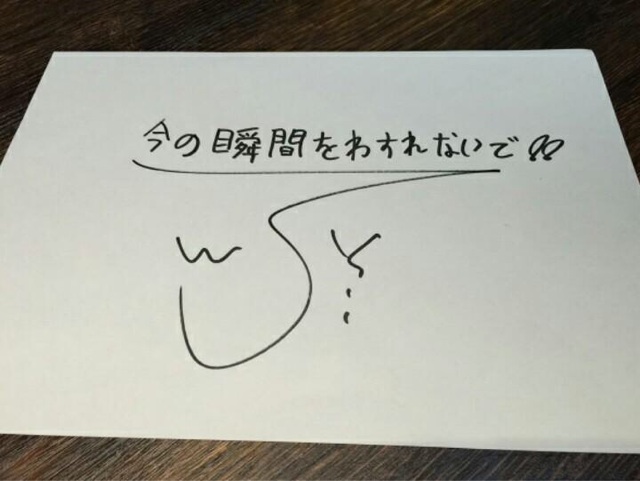 今の瞬間をわすれないで!!